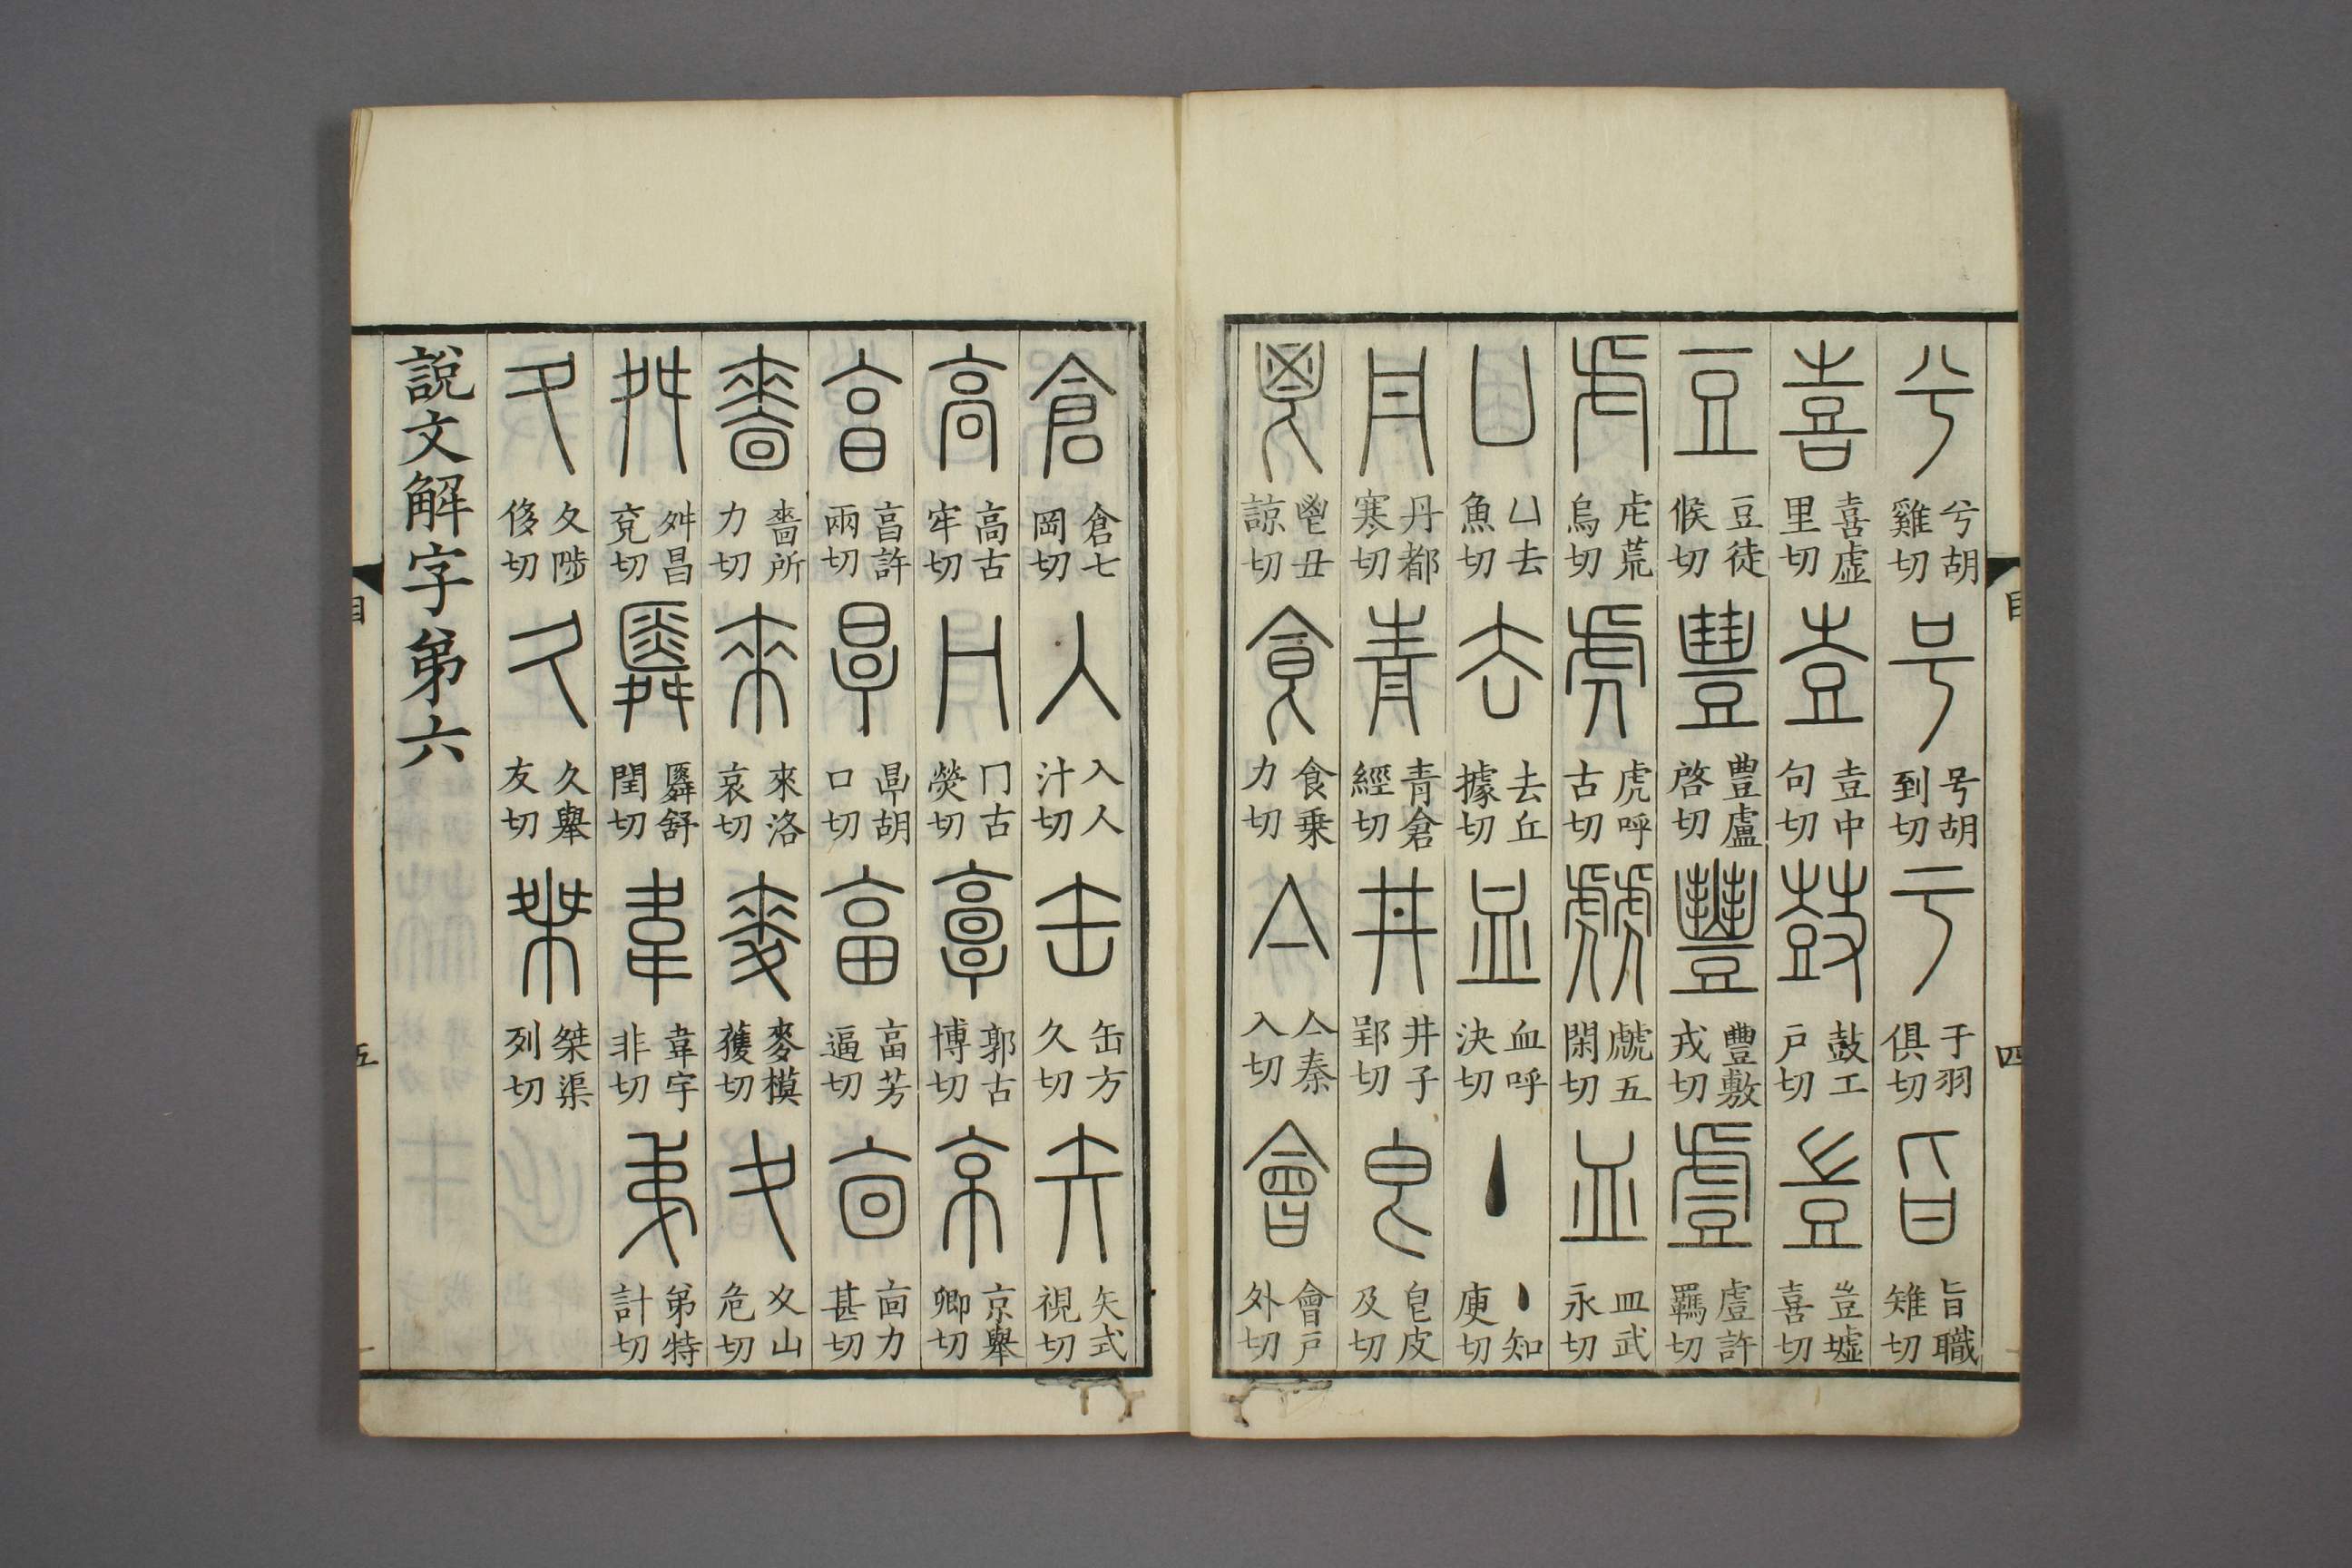 兮 兮胡雞切 号 号胡到切 亏 于羽俱切 旨 旨職雉切
喜 喜虛里切 壴 壴中句切 鼓 鼓工戶切 豈 豈墟喜切
豆 豆徒候切 豊 豊盧啓切 豐 豐敷戎切 䖒 䖒許羈切
虍 虍荒烏切 虎 虎呼古切 虤 虤五閑切 皿 皿武永切
凵 凵去魚切 去 去丘據切 血 血呼決切 丶 丶知庾切
丹 丹都寒切 青 青倉經切 井 井子郢切 皀 皀皮及切
鬯 鬯丑諒切 食 食乗力切 亼 亼秦入切 會 會戶外切
倉 倉七岡切 入 入人汁切 缶 缶方久切 矢 矢式視切
高 高古牢切 冂 冂古熒切 𩫏 郭古博切 京 京舉卿切
亯 亯許兩切 㫗 㫗胡口切 畗 畗芳逼切 㐭 㐭力甚切
嗇 嗇所力切 來 來洛哀切 麥 麥模獲切 夊 夊山危切
舛 舛昌兗切 䑞 䑞舒閏切 韋 韋宇非切 弟 弟特計切
夂 夂陟侈切 久 久舉友切 桀 桀渠列切
說文解字第六